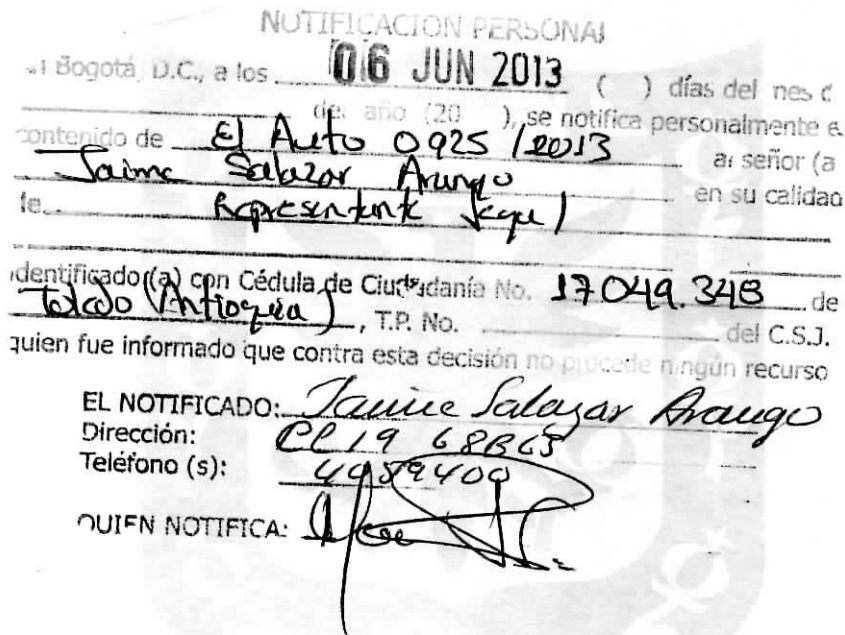 NOTIFICACION PERSONAL
Bogotá, D.C., a los 06 JUN 2013 ( ) días del mes d
del año (20 ), se notifica personalmente e
contenido de El Auto 0925 /2013 al señor (a
Jaime Salazar Arango en su calidad
de Representante Legal
identificado(a) con Cédula de Ciudadanía No. 17049.348 de
Toledo (Antioquia), T.P. No. del C.S.J.
quien fue informado que contra esta decisión no procede ningún recurso
EL NOTIFICADO: Jaime Salazar Arango
Dirección: CL 19 68B65
Teléfono (s): 4059400
QUIEN NOTIFICA: